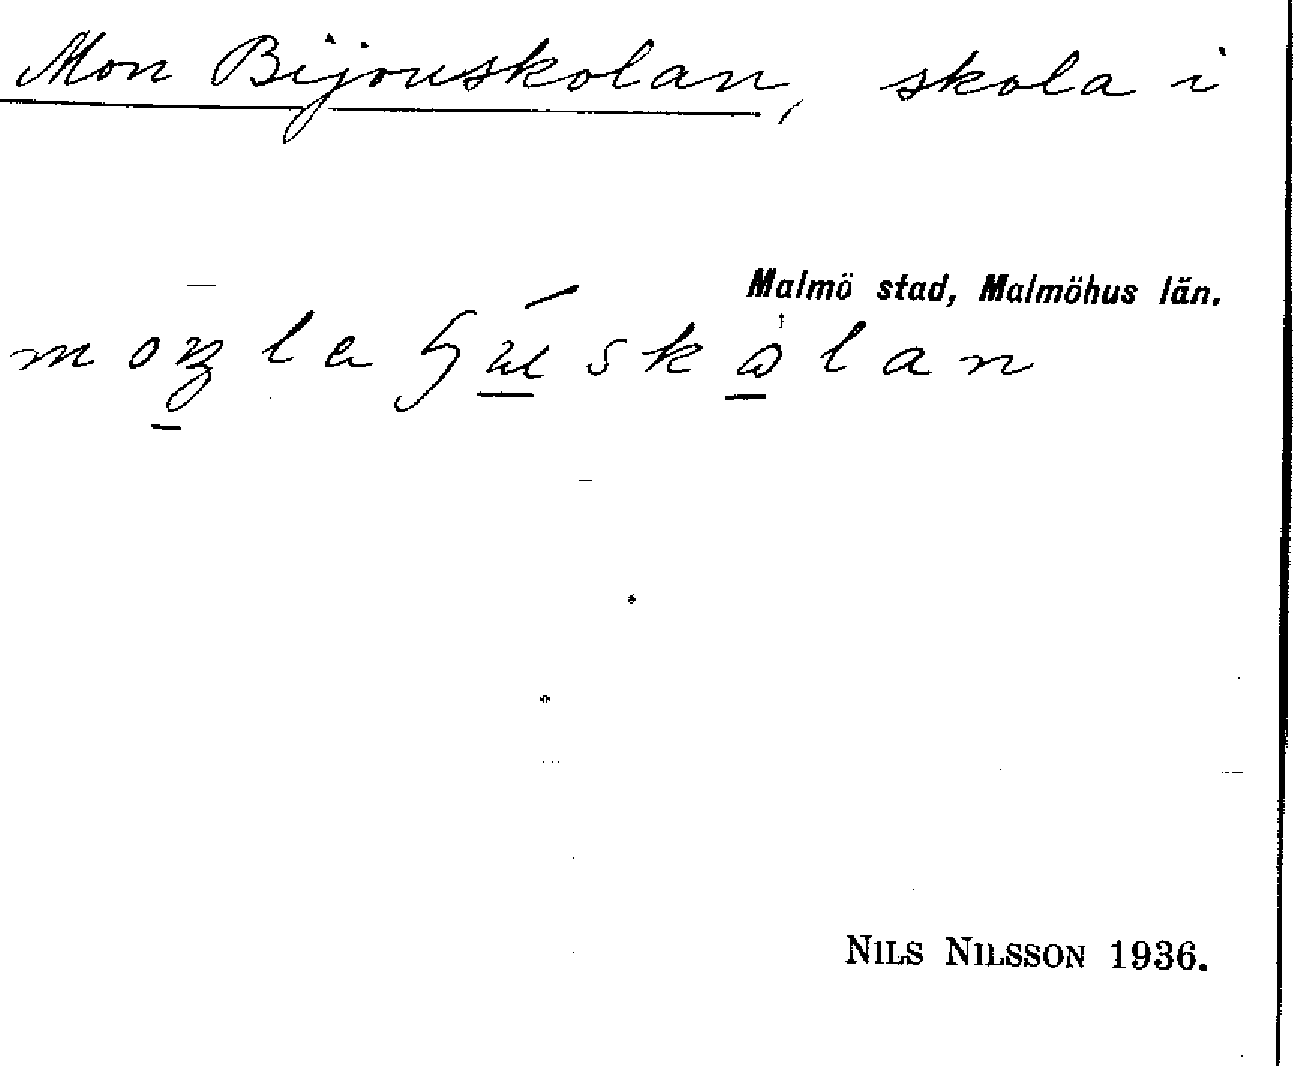 Mon Bijouskolan, skola i
Malmö stad, Malmöhus län.
NILS NILSSON 1936.